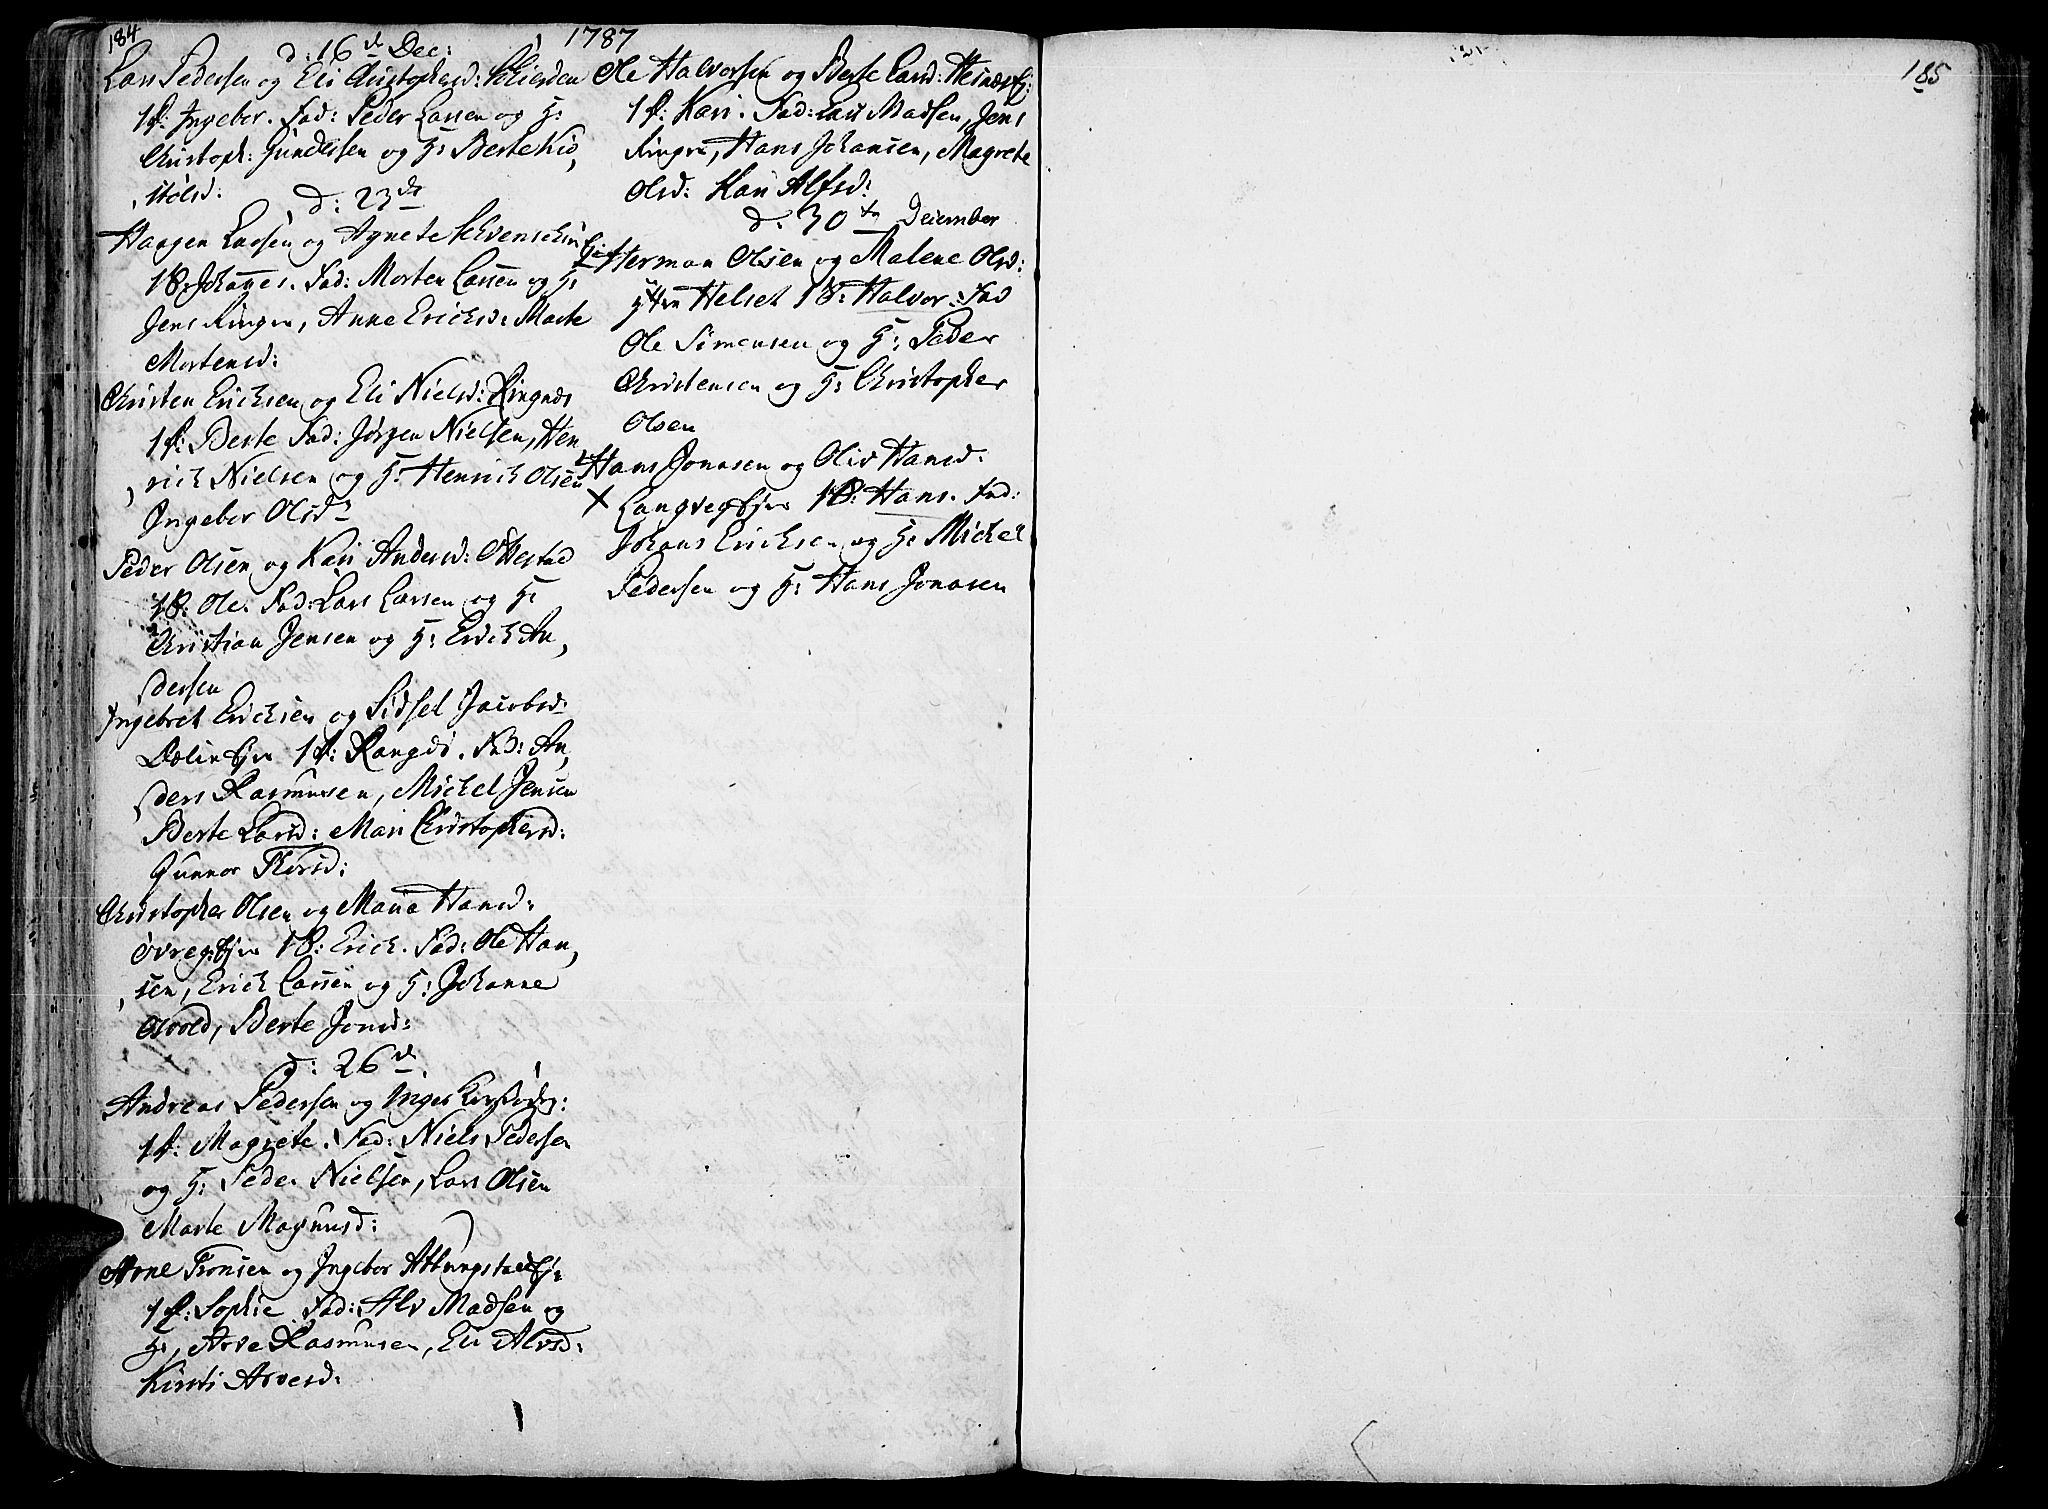 184
1787
d: 16de Dec:
Lars Pedersen og Eli Christophersd:
1 p: Ingebor. Fad: Peder Larsen og H:
Christoph: Gundersen og H: Berte Kiø,
stølsd:
d: 23de
Haagen Larsen og Agnete
1 B: Johanes. Fad: Morten Larsen og H:
Jens Ringen, Anne Ericksd: Marte
Mortensd:
Christen Ericksen og Eli Nielsd: Ringnes
1 p: Berte Fad: Jørgen Nielsen, Hen,
rich Nielsen og H: Henrich Olsen
Ingebor Olsd:
Peder Olsen og Kari Andersd: Ottestad
1 B: Ole. Fad: Lars Larsen og H:
Christian Jensen og H: Erick An,
dersen
Ingebret Ericksen og Sidsel Jacobsd:
1 p: Rangdi. Fad: An,
ders Rasmusen, Michel Jensen
Berte Larsd: Mari Christophersd:
Gunnor Thorsd:
Christopher Olsen og Maria Hansd:
1 B: Erick. Fad: Ole Han,
sen, Erick Larsen og H: Johanne
Berte Jonsd:
d: 26de
Andreas Pedersen og Inger
1 p: Magrete. Fad: Niels Pedersen
og H: Peder Nielsen, Lars Olsen
Marte Magnusd:
Arne Tronsen og Ingebor
1 p: Sophie Fad: Alv Madsen og
H:, Arve Rasmusen, Eli Alvsd:
Kirsti Arvesd:
Ole Halvorsen og Berte Larsd:
1 p: Kari. Fad: Lars Madsen, Jens
Ringen, Hans Johansen, Magrete
Olsd: Kari Alfsd:
d: 30te December
Herman Olsen og Malene Olsd:
yttre Helset 1 B: Halvor. Fad
Ole Simensen og H: Peder
Christensen og H: Christopher
Olsen
Hans Jonasen og Oliv Hansd:
X 1 B: Hans. Fad:
Johans Ericksen og H: Michel
Pedersen og H: Hans Jonasen
185